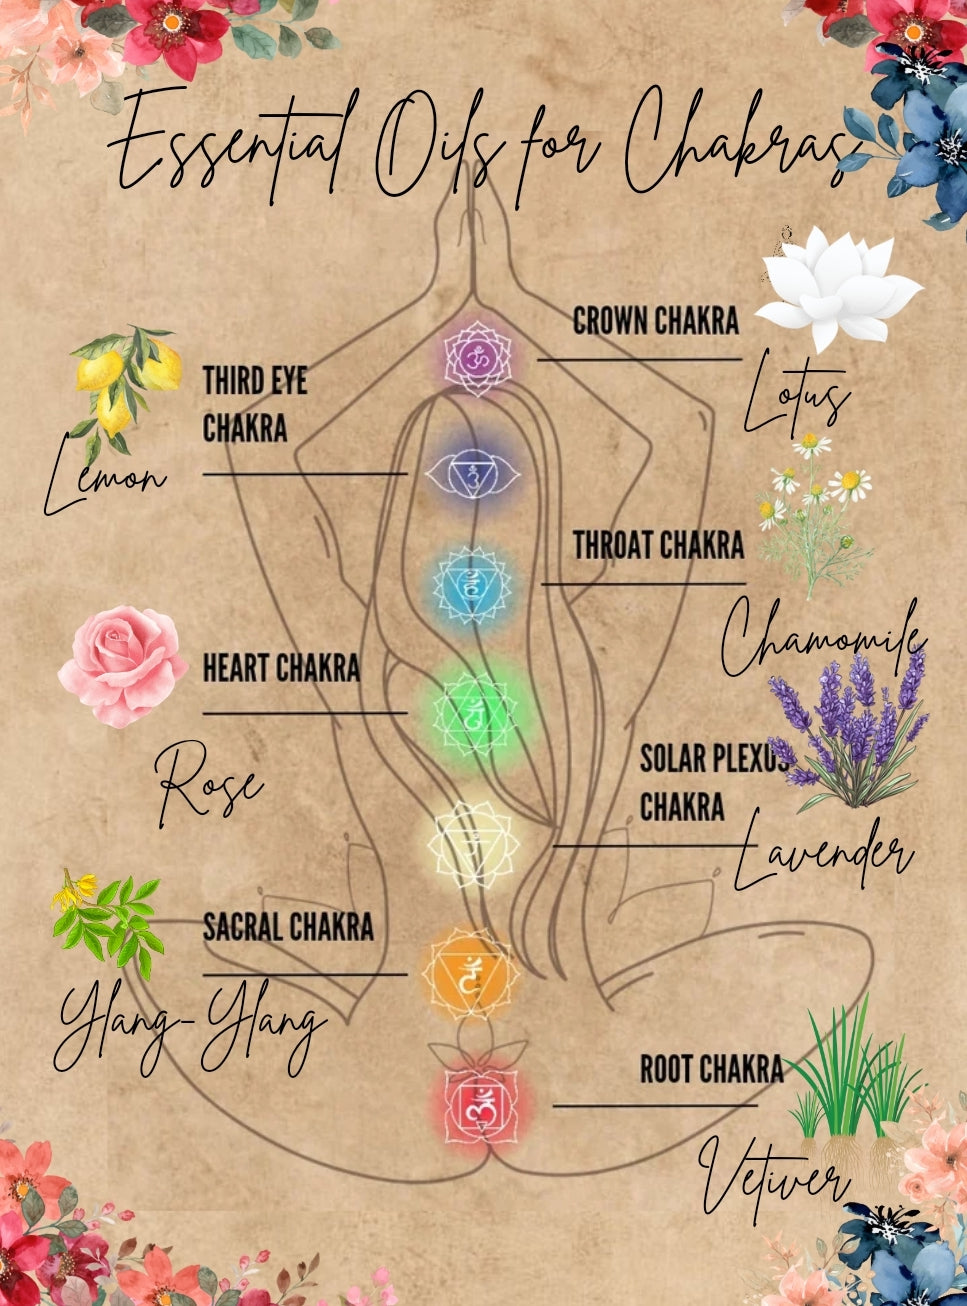 Essential Oils for Chakras
CROWN CHAKRA
Lotus
THIRD EYE
CHAKRA
Lemon
THROAT CHAKRA
Chamomile
HEART CHAKRA
Rose
SOLAR PLEXUS
CHAKRA
Lavender
SACRAL CHAKRA
Ylang-Ylang
ROOT CHAKRA
Vetiver